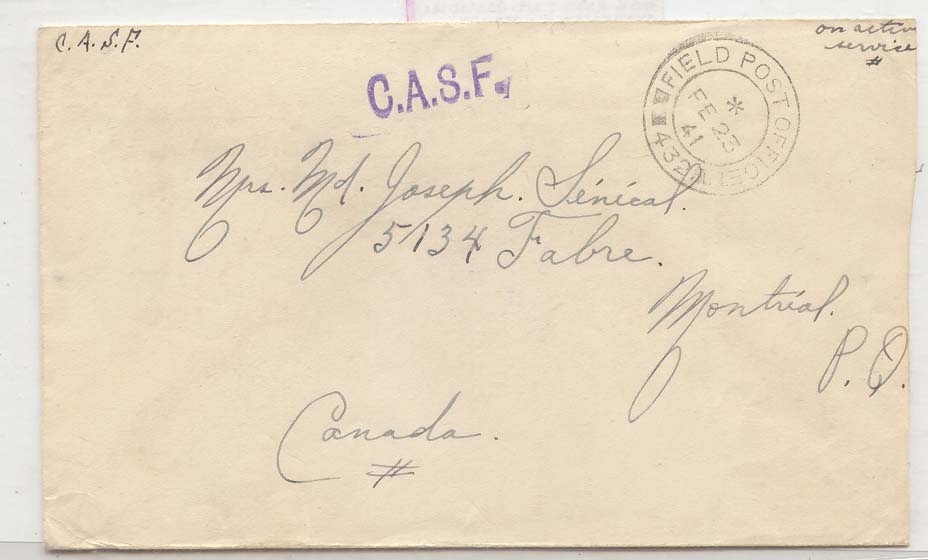 C. A. S. F.
on active
service
#
C.A.S.F.
FIELD POST OFFICE
432
FE 23
41
Mrs. Md. Joseph. Sénécal.
5134 Fabre.
Montréal.
P. Q.
Canada.
#